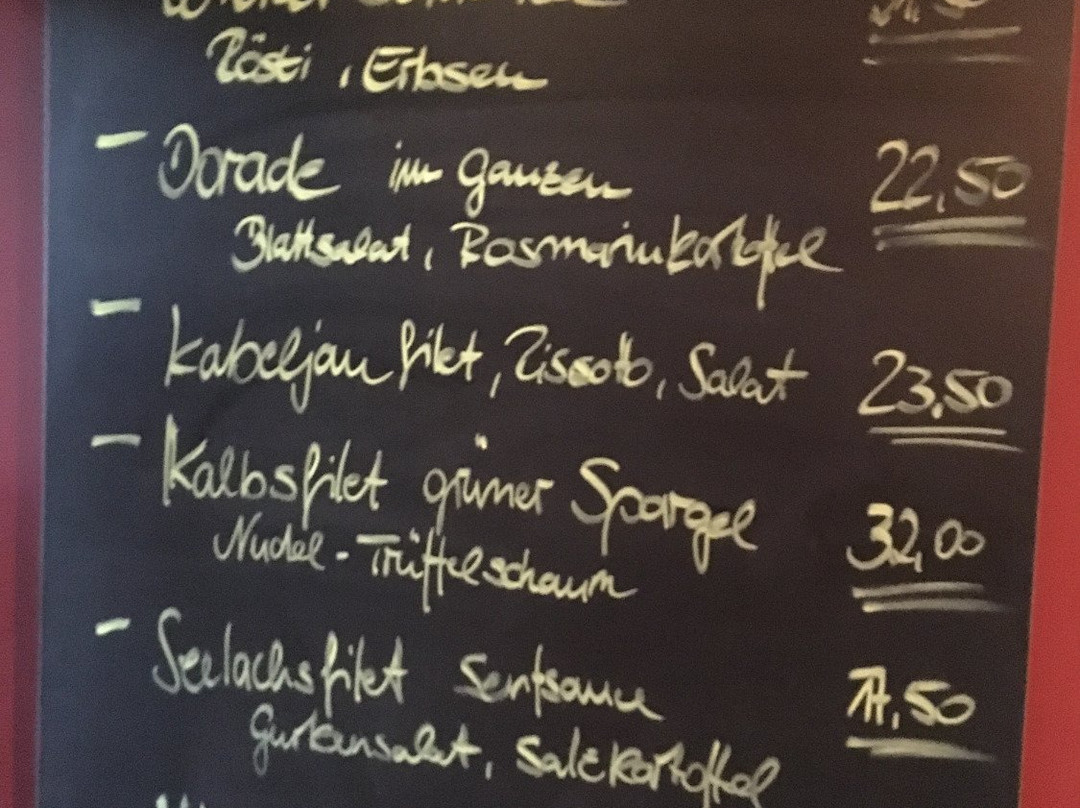 Rösti, Erbsen
- Dorade im Ganzen 22,50
Blattsalat, Rosmarinkartoffel
- Kabeljaufilet, Rissotto, Salat 23,50
- Kalbsfilet grüner Spargel 32,00
Nudel - Trüffelschaum
- Seelachsfilet Senfsauce
Gurkensalat, Salzkartoffel